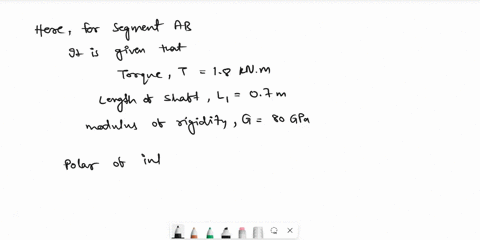 Here, for segment AB
It is given that
Torque, T = 1.8 kN.m
Length of shaft, L₁ = 0.7 m
modulus of rigidity, G = 80 GPa
Polar of inl